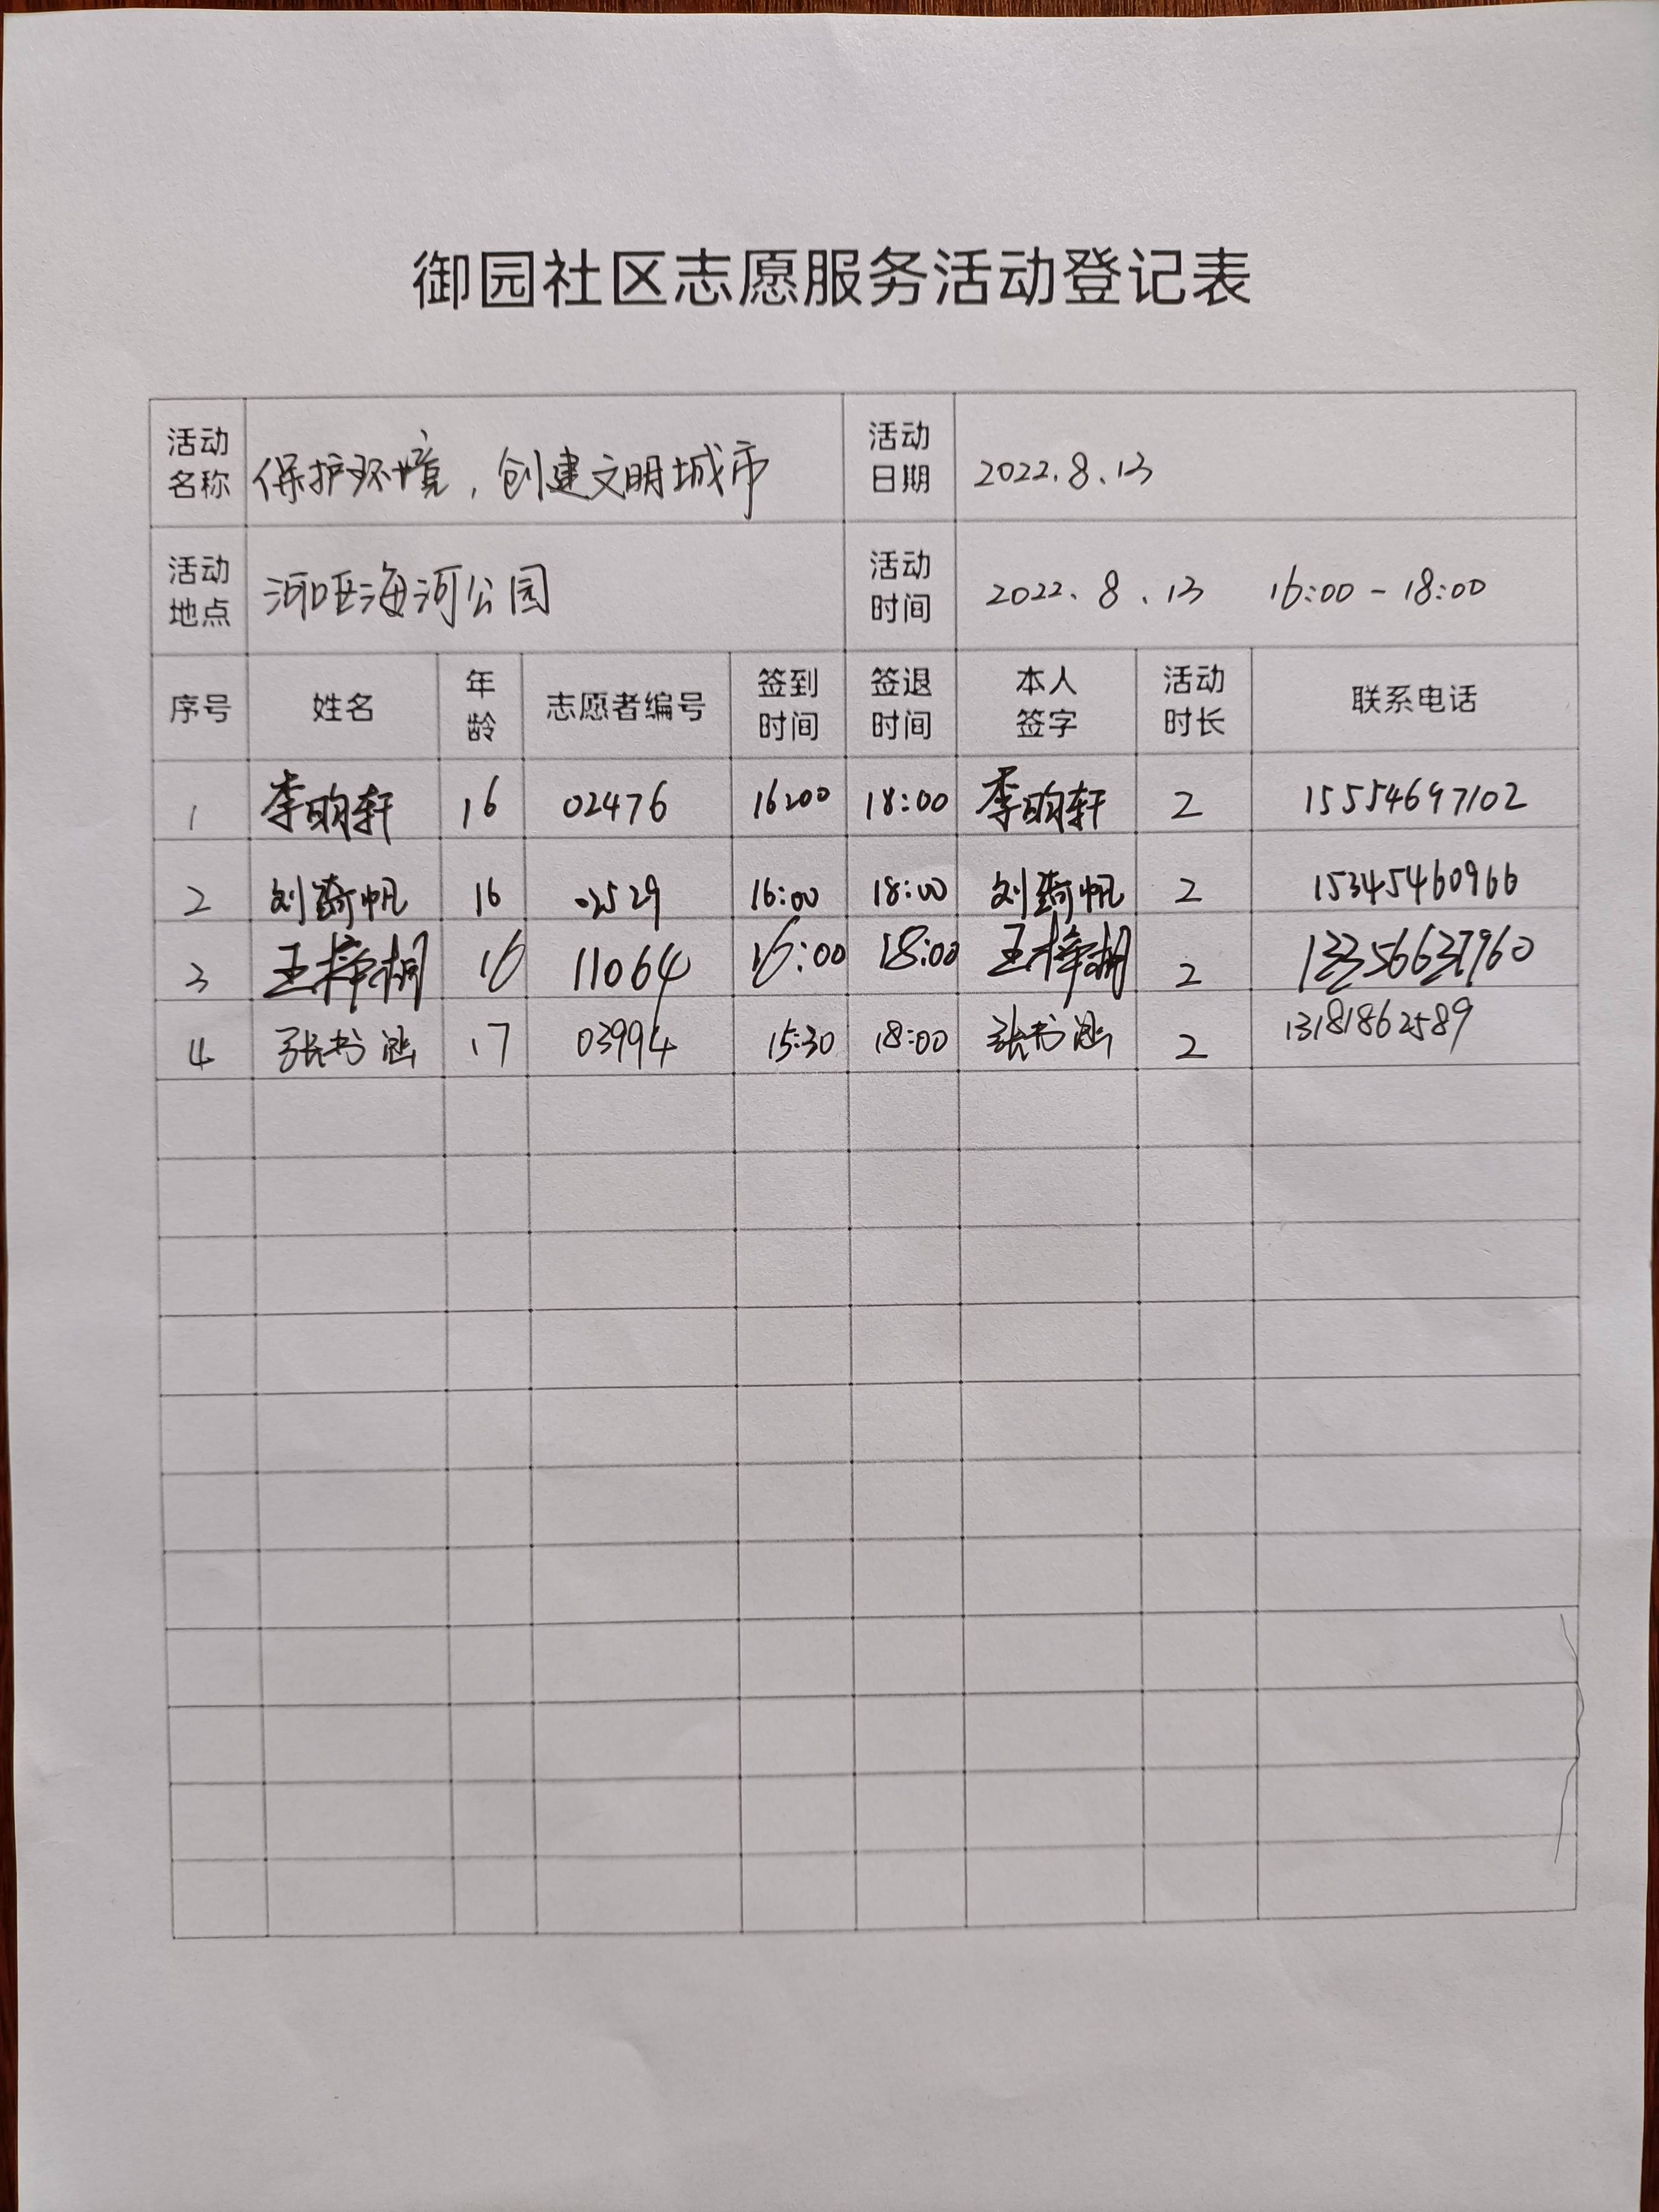 御园社区志愿服务活动登记表
活动名称 保护环境,创建文明城市 活动日期 2022.8.13
活动地点 海河公园 活动时间 2022.8.13 16:00-18:00
序号 姓名 年龄 志愿者编号 签到时间 签退时间 本人签字 活动时长 联系电话
1 李昀轩 16 02476 16:00 18:00 李昀轩 2 15554697102
2 刘骑帆 16 2529 16:00 18:00 刘骑帆 2 15345460966
3 王梓桐 16 11064 16:00 18:00 王梓桐 2
4 张书涵 17 03994 15:30 18:00 张书涵 2 13181862589